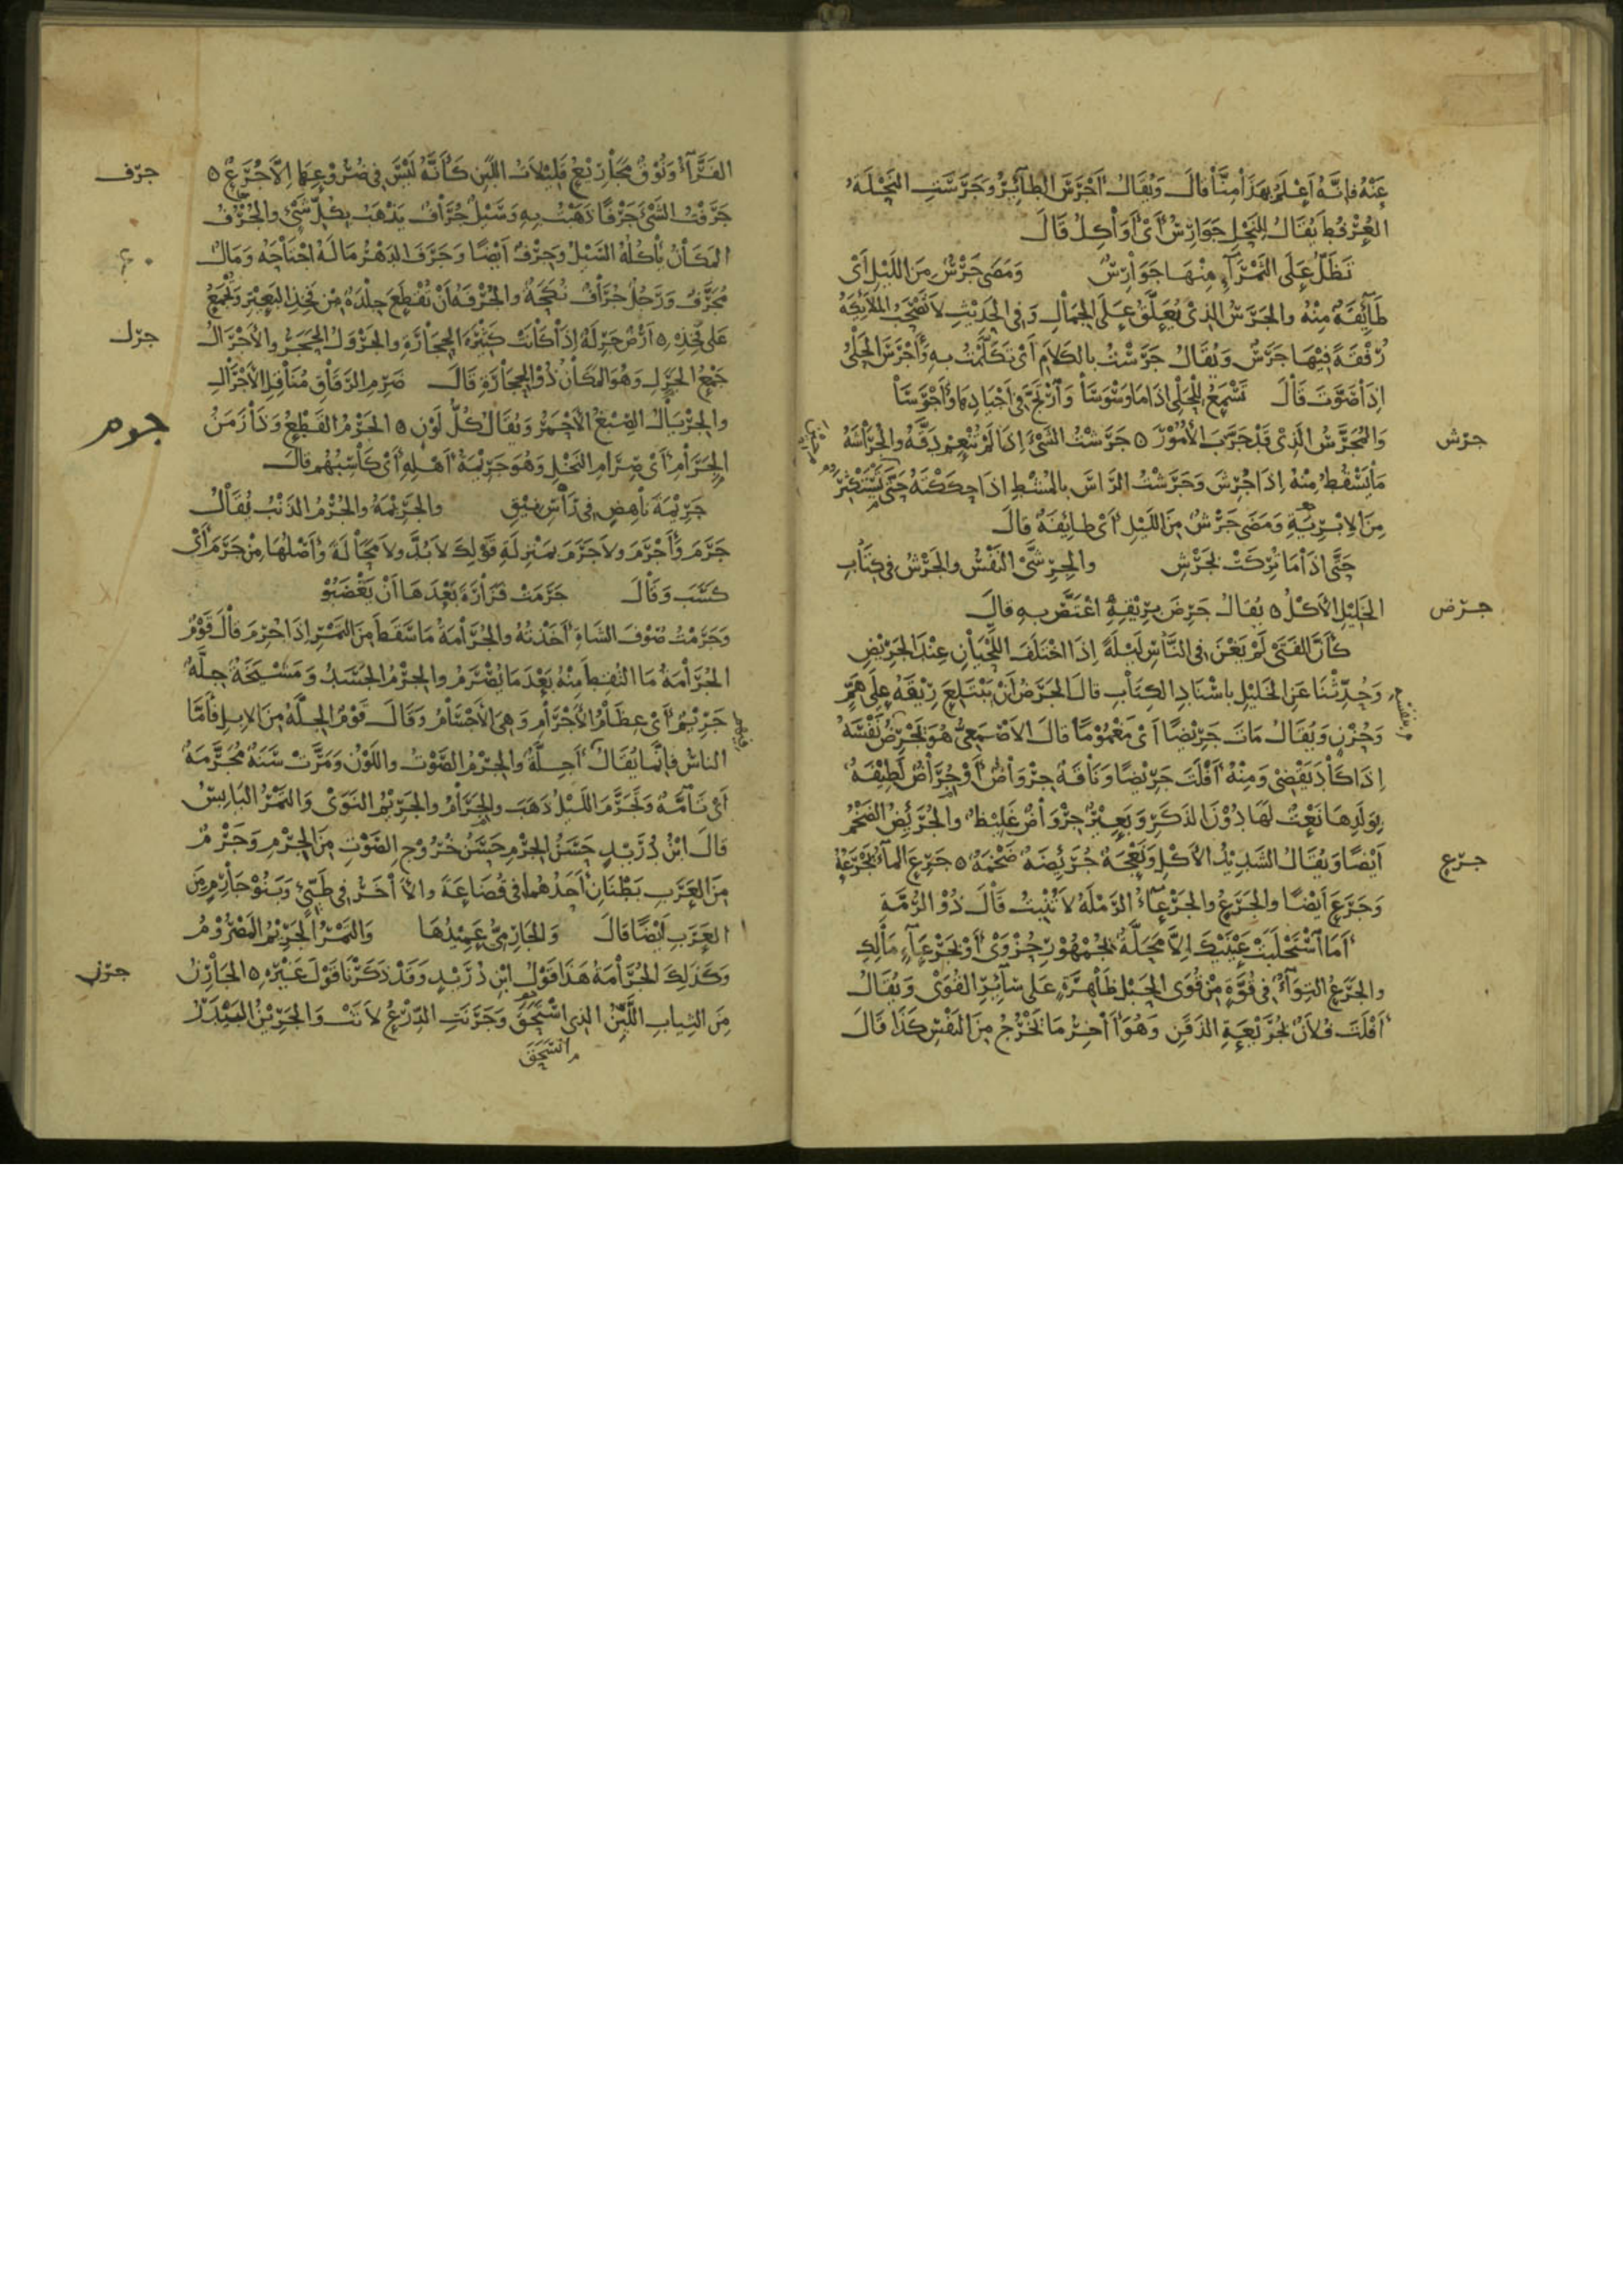 عَنْهُ فَإِنَّهُ أَعْلَمُ بِهَذَا مِنَّا قَالَ وَيُقَالُ أَجْرَسَ الطَّائِرُ وَجَرَسَتِ النَّحْلَةُ
العُرْفُطَ يُقَالُ لِلنَّحْلِ جَوَارِسُ أَيْ أَوَاكِلُ قَالَ
تَظَلُّ عَلَى الثَّمْرَاءِ مِنْهَا جَوَارِسٌ وَمَضَى جَرْسٌ مِنَ اللَّيْلِ أَيْ
طَائِفَةٌ مِنْهُ وَالجَرَسُ الَّذِي يُعَلَّقُ عَلَى الجِمَالِ وَفِي الحَدِيثِ لَا تَصْحَبُ المَلَائِكَةُ
رُفْقَةً فِيهَا جَرَسٌ وَيُقَالُ جَرَسْتُ بِالكَلَامِ أَيْ تَكَلَّمْتُ بِهِ وَأَجْرَسَ الحَلْيُ
إِذَا صَوَّتَ قَالَ تَسْمَعُ لِلْحَلْيِ إِذَا مَا وَسْوَسَا وَارْتَجَّ فِي أَجْيَادِهَا وَأَجْرَسَا
جرش
وَالمُجَرَّسُ الَّذِي قَدْ جَرَّبَ الأُمُورَ ٥ جَرَشْتُ الشَّيْءَ إِذَا لَمْ تُنْعِمْ دَقَّهُ وَالجُرَاشَةُ
مَا يَسْقُطُ مِنْهُ إِذَا جُرِشَ وَجَرَشْتُ الرَّاسَ بِالمُشْطِ إِذَا حَكَكْتَهُ حَتَّى تَسْتَكْثِرَ
مِنَ الإِبْرِيَةِ وَمَضَى جَرْشٌ مِنَ اللَّيْلِ أَيْ طَائِفَةٌ قَالَ
حَتَّى إِذَا مَا تُرِكَتْ بِجَرْشِ وَالجِرِشَّى النَّفْسُ وَالجَرْشُ فِي كِتَابِ
جرض
الخَلِيلِ الأَكْلُ ٥ يُقَالُ جَرِضَ بِرِيقِهِ اغْتَصَّ بِهِ قَالَ
كَأَنَّ الفَتَى لَمْ يَغْنَ فِي النَّاسِ لَيْلَةً إِذَا اخْتَلَفَ اللَّحْيَانِ عِنْدَ الجَرِيضِ
وَحُدِّثْنَا عَنِ الخَلِيلِ بِإِسْنَادِ الكِتَابِ قَالَ الجَرَضُ أَنْ يَبْتَلِعَ رِيقَهُ عَلَى هَمٍّ
وَحُزْنٍ وَيُقَالُ مَاتَ جَرِيضًا أَيْ مَغْمُومًا قَالَ الأَصْمَعِيُّ هُوَ يَجْرَضُ نَفْسَهُ
إِذَا كَادَ يَقْضِي وَمِنْهُ أَفْلَتَ جَرِيضًا وَنَاقَةٌ جِرْوَاضٌ أَوْ جُرَاضٌ لَطِيفَةٌ
بِوَلَدِهَا نَعْتٌ لَهَا دُونَ الذَّكَرِ وَبَعِيرٌ جِرْوَاضٌ غَلِيظٌ وَالجُرَئِضُ الضَّخْمُ
جرع
أَيْضًا وَيُقَالُ الشَّدِيدُ الأَكْلِ وَنَعْجَةٌ جُرَئِضَةٌ ضَخْمَةٌ ٥ جَرِعَ المَاءَ يَجْرَعُهُ
وَجَرَعَ أَيْضًا وَالجَرَعُ وَالجَرْعَاءُ الرَّمْلَةُ لَا تُنْبِتُ قَالَ ذُو الرُّمَّةِ
أَمَا اسْتَحْلَبَتْ عَيْنَيْكَ إِلَّا مَحَلَّةٌ بِجُمْهُورِ حُزْوَى أَوْ بِجَرْعَاءِ مَالِكِ
وَالجَرَعُ التِوَاءٌ فِي قُوَّةٍ مِنْ قُوَى الحَبْلِ ظَاهِرَةٍ عَلَى سَائِرِ القُوَى وَيُقَالُ
أَفْلَتَ فُلَانٌ بِجُرَيْعَةِ الذَّقَنِ وَهُوَ آخِرُ مَا يَخْرُجُ مِنَ النَّفْسِ كَذَا قَالَ
جرف
الفَرَّاءُ وَنُوقٌ مَجَارِيعُ قَلِيلَاتُ اللَّبَنِ كَأَنَّهُ لَيْسَ فِي ضُرُوعِهَا إِلَّا جُرَعٌ ٥
جَرَفْتُ الشَّيْءَ جَرْفًا ذَهَبْتُ بِهِ وَسَيْلٌ جُرَافٌ يَذْهَبُ بِكُلِّ شَيْءٍ وَالجُرْفُ
المَكَانُ يَأْكُلُهُ السَّيْلُ وَجِرْفٌ أَيْضًا وَجَرَفَ الدَّهْرُ مَالَهُ اجْتَاحَهُ وَمَالٌ
مُجَرَّفٌ وَرَجُلٌ جُرَافٌ نُكَحَةٌ وَالجُرْفَةُ أَنْ تُقْطَعَ جِلْدَةٌ مِنْ فَخِذِ البَعِيرِ وَتُجْمَعُ
جرل
عَلَى فَخِذِهِ ٥ أَرْضٌ جَرِلَةٌ إِذَا كَانَتْ كَثِيرَةَ الحِجَارَةِ وَالجَرْوَلُ الحَجَرُ وَالأَجْرَالُ
جَمْعُ الجَرَلِ وَهُوَ المَكَانُ ذُو الحِجَارَةِ قَالَ ضَرِمِ الرَّقَاقِ مُنَاقِلِ الأَجْرَالِ
جرم
وَالجِرْيَالُ الصِّبْغُ الأَحْمَرُ وَيُقَالُ كُلُّ لَوْنٍ ٥ الجَرْمُ القَطْعُ وَذَا زَمَنُ
الجِرَامِ أَيْ صِرَامِ النَّخْلِ وَهُوَ جَرِيمَةُ أَهْلِهِ أَيْ كَاسِبُهُمْ قَالَ
جَرِيمَةَ نَاهِضٍ فِي رَأْسِ نِيقٍ وَالجَرِيمَةُ وَالجُرْمُ الذَّنْبُ يُقَالُ
جَرَمَ وَأَجْرَمَ وَلَا جَرَمَ بِمَنْزِلَةِ قَوْلِكَ لَا بُدَّ وَلَا مَحَالَةَ وَأَصْلُهَا مِنْ جَرَمَ أَيْ
كَسَبَ وَقَالَ جَرَمَتْ فَزَارَةَ بَعْدَهَا أَنْ يَغْضَبُوْ
وَجَرَمْتُ صُوفَ الشَّاةِ أَخَذْتُهُ وَالجُرَامَةُ مَا سَقَطَ مِنَ التَّمْرِ إِذَا جُرِمَ قَالَ قَوْمٌ
الجُرَامَةُ مَا التُقِطَ مِنْهُ بَعْدَ مَا يُصْرَمُ وَالجِرْمُ الجَسَدُ وَمَشْيَخَةٌ جِلَّةٌ
جَرِيْمٌ أَيْ عِظَامُ الأَجْرَامِ وَهِيَ الأَجْسَامُ وَقَالَ قَوْمٌ الجِلَّةُ مِنَ الإِبِلِ فَأَمَّا
النَّاسُ فَإِنَّمَا يُقَالُ أَجِلَّةٌ وَالجِرْمُ الصَّوْتُ وَاللَّوْنُ وَمَرَّتْ سَنَةٌ مُجَرَّمَةٌ
أَيْ تَامَّةٌ وَتَجَرَّمَ اللَّيْلُ ذَهَبَ وَالجَرَامُ وَالجَرِيمُ النَّوَى وَالتَّمْرُ اليَابِسُ
قَالَ ابْنُ دُرَيْدٍ حَسَنُ الجِرْمِ حَسَنُ خُرُوجِ الصَّوْتِ مِنَ الجِرْمِ وَجَرْمٌ
مِنَ العَرَبِ بَطْنَانِ أَحَدُهُمَا فِي قُضَاعَةَ وَالآخَرُ فِي طَيِّئٍ وَبَنُو جَارِمٍ مِنَ
العَرَبِ أَيْضًا قَالَ وَالجَارِمِيُّ عَمِيدُهَا وَالتَّمْرُ الجَرِيمُ المَصْرُومُ
جرن
وَكَذَلِكَ الجُرَامَةُ هَذَا قَوْلُ ابْنِ دُرَيْدٍ وَقَدْ ذَكَرْنَا قَوْلَ غَيْرِهِ ٥ الجَارِنُ
مِنَ الثِّيَابِ اللَّيِّنُ الَّذِي انْسَحَقَ وَجَرَنَتِ الدِّرْعُ لَانَتْ وَالجَرِيْنُ البَيْدَرُ
انْسَحَقَ